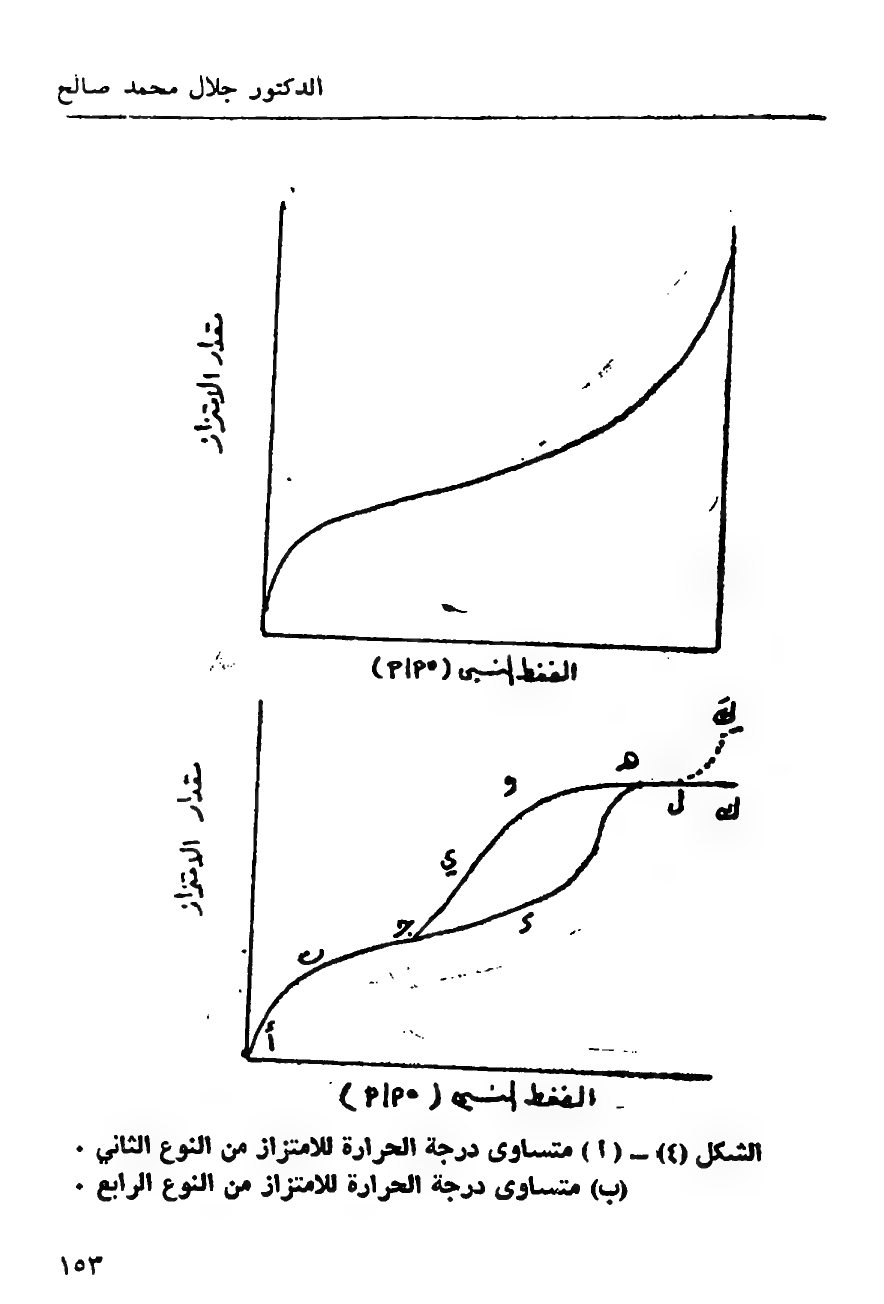 الدكتور جلال محمد صالح
مقدار الامتزاز
الضغط النسبي (P/P°)
كَ
هـ
و
ل
ك
ي
جـ
د
ب
أ
مقدار الامتزاز
الضغط النسبي (P/P°)
الشكل (٤) ــ (أ) متساوى درجة الحرارة للامتزاز من النوع الثاني .
(ب) متساوى درجة الحرارة للامتزاز من النوع الرابع .
١٥٣